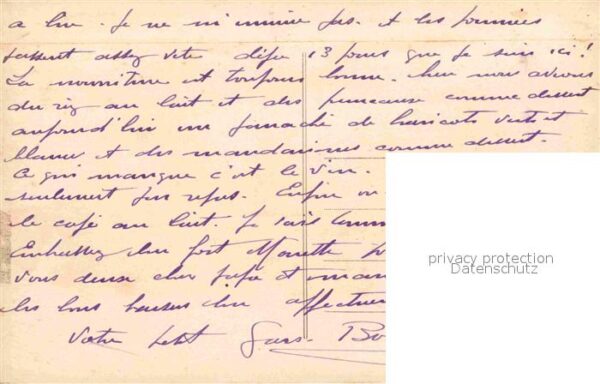 a lire. Je ne m'ennuie pas. et les journées
passent assez vite déja 13 jours que je suis ici!
La nourriture est toujours bonne. hier nous avions
du riz au lait et des pruneaux comme dessert
aujourd'hui un panaché de haricots verts et
blancs et des mandarines comme dessert.
Ce qui manque c'est le vin.
seulement par repas. Enfin on
le café au lait. Je suis
Embrassez bien fort Monette
vous deux cher papa et
les bons baisers bien
Votre petit gars. Bo
privacy protection
Datenschutz